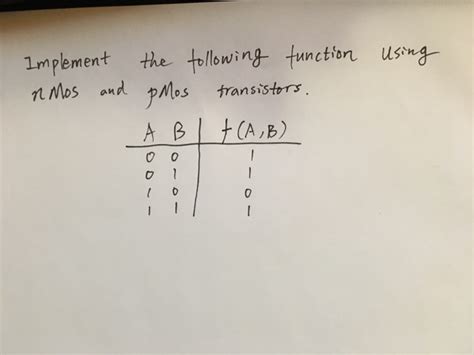 Implement the following function using
nMos and pMos transistors.
A B f(A,B)
0 0 1
0 1 1
1 0 0
1 1 1